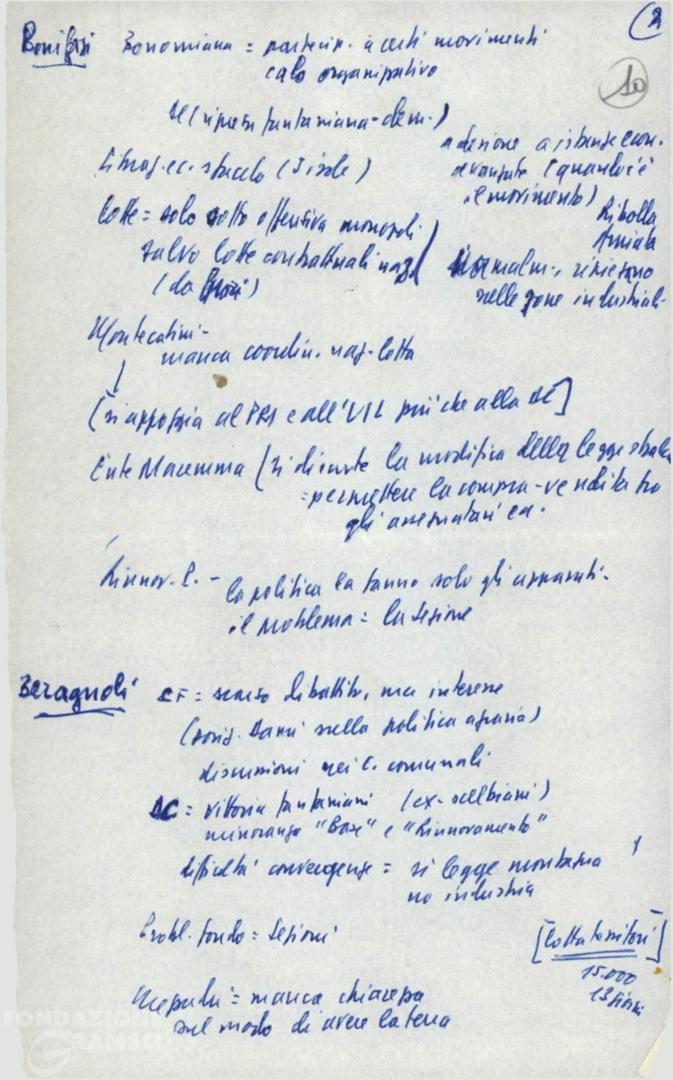 2
10
Bonifazi Bonomiana = partecip. a certi movimenti
calo organizzativo
DC (ripresa fanfaniana-dem.)
adesione a istanze econ.
avanzate (quando c'è
il movimento)
Ribolla
Amiata
Lotte = solo sotto offensiva monopoli
salvo lotte contrattuali naz.
Normalm., risiedono
nelle zone industriali-
Montecatini-
manca coordin. naz. lotta
[si appoggia al PRI e all'UIL più che alla DC]
Ente Maremma (si discute la modifica della legge stralcio
= permettere la compra-vendita tra
gli assegnatari ecc.
Rinnov. - la politica la fanno solo gli apparati.
il problema = la sezione
Beragnoli CF = scarso dibattito, ma interesse
sulla politica agraria)
discussioni nei C. comunali
DC = vittoria fanfaniani (ex-scelbiani)
minoranze "Base" e "Rinnovamento"
difficoltà convergenze = si legge montagna
no industria
Probl. fondo = Sezioni
[Lotta
15.000
Mezzadri = manca chiarezza
sul modo di avere la terra
FONDAZIONE
GRAMSCI